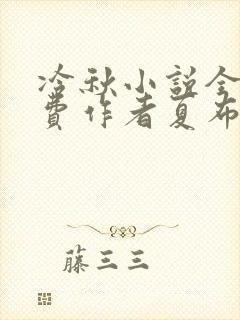 冷秋小说全
费作者夏布
藤三三